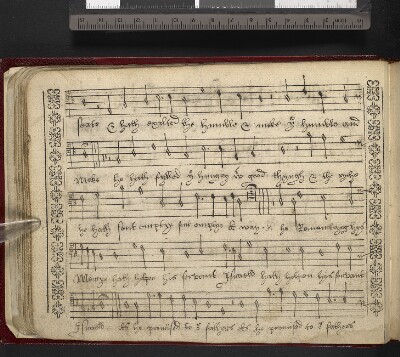 seate & hath exalted the humble & meke yͤ humble and
Meke he hath fylled yͤ hungry wͭ good thyngs & the ryche
he hath sent emptye sent emptye a way. he Remembryng hys
Mercy hath holpen his servant hath holpen hys servant
as he promised to oͬ fathers as he promised to oͬ fathers